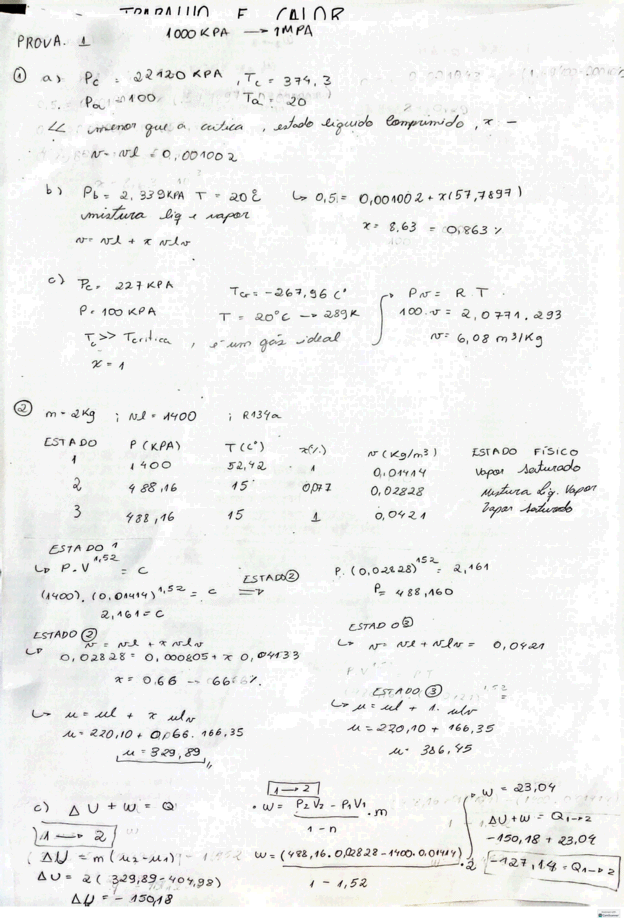 TRABALHO E CALOR
1000 KPA → 1MPA
PROVA. 1
① a) Pc = 22120 KPA , Tc = 374,3
Pa = 100 Ta = 20
<< menor que a critica , estado liquido comprimido , x -
v = vl = 0,001002
b) Pb = 2,339KPA T = 20
mistura liq e vapor
v = vl + x vlv
↳ 0,5 = 0,001002 + x(57,7897)
x = 8,63 = 0,863 %
c) Pc = 227 KPA Tcr = -267,96 C°
P = 100 KPA T = 20°C → 289K
Tc >> Tcritica , é um gás ideal
x = 1
→ Pv = R.T
100.v = 2,0771.293
v = 6,08 m³/Kg
② m = 2Kg ; vl = 1400 ; R134a
ESTADO P (KPA) T (C°) x(%) v (Kg/m³) ESTADO FÍSICO
1 1400 52,42 1 0,01414 Vapor saturado
2 488,16 15 0,02828 Mistura Liq. Vapor
3 488,16 15 1 0,0421 Vapor saturado
ESTADO 1
↳ P.V^1,52 = C
(1400).(0,01414)^1,52 = c ⇒
2,161 = C
ESTADO ②
P.(0,02828)^152 = 2,161
P = 488,160
ESTADO ②
↳ v = vl + x vlv
0,02828 = 0,000805 + x 0,04133
x = 0,66 → 66%
ESTADO ③
↳ v = vl + vlv = 0,0421
↳ u = ul + x ulv
u = 220,10 + 0,66.166,35
u = 329,89
ESTADO ③
↳ u = ul + 1. ulv
u = 220,10 + 166,35
u = 386,45
c) ΔU + W = Q
1 → 2
ΔU = m(u2 - u1)
ΔU = 2(329,89 - 404,98)
ΔU = -150,18
1 → 2
• W = P2V2 - P1V1 .m
1 - n
W = (488,16.0,02828 - 1400.0,01414) .2
1 - 1,52
W = 23,04
ΔU + W = Q1→2
-150,18 + 23,04
-127,14 = Q1→2